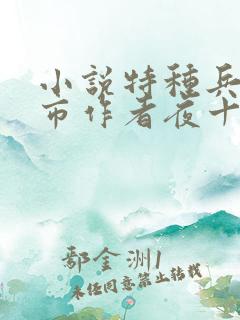 小説特種兵
市作者夜十
鄢金洲1
未经同意禁止转载